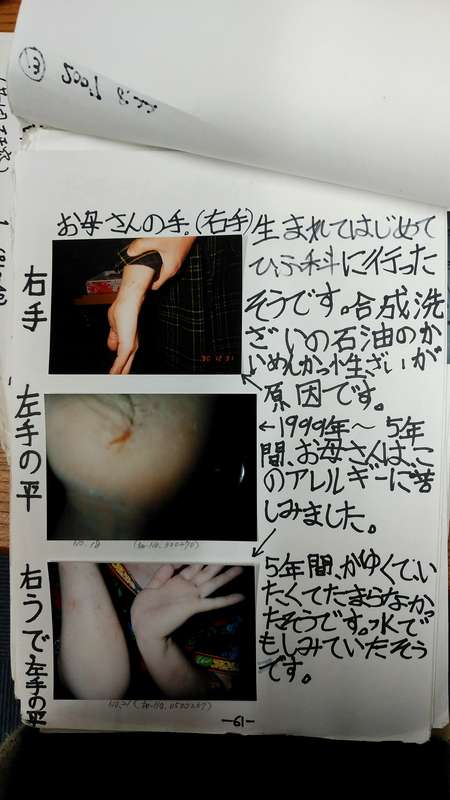 お母さんの手。(右手)
右手
左手の平
右うで左手の平
生まれてはじめて
ひふ科に行った
そうです。合成洗
ざいの石油のか
いめんかっ性ざいが
原因です。
←1999年〜5年
間、お母さんは、こ
のアレルギーに苦
しみました。
5年間、かゆくて、い
たくてたまらなかっ
たそうです。水で
もしみていたそう
です。
-61-